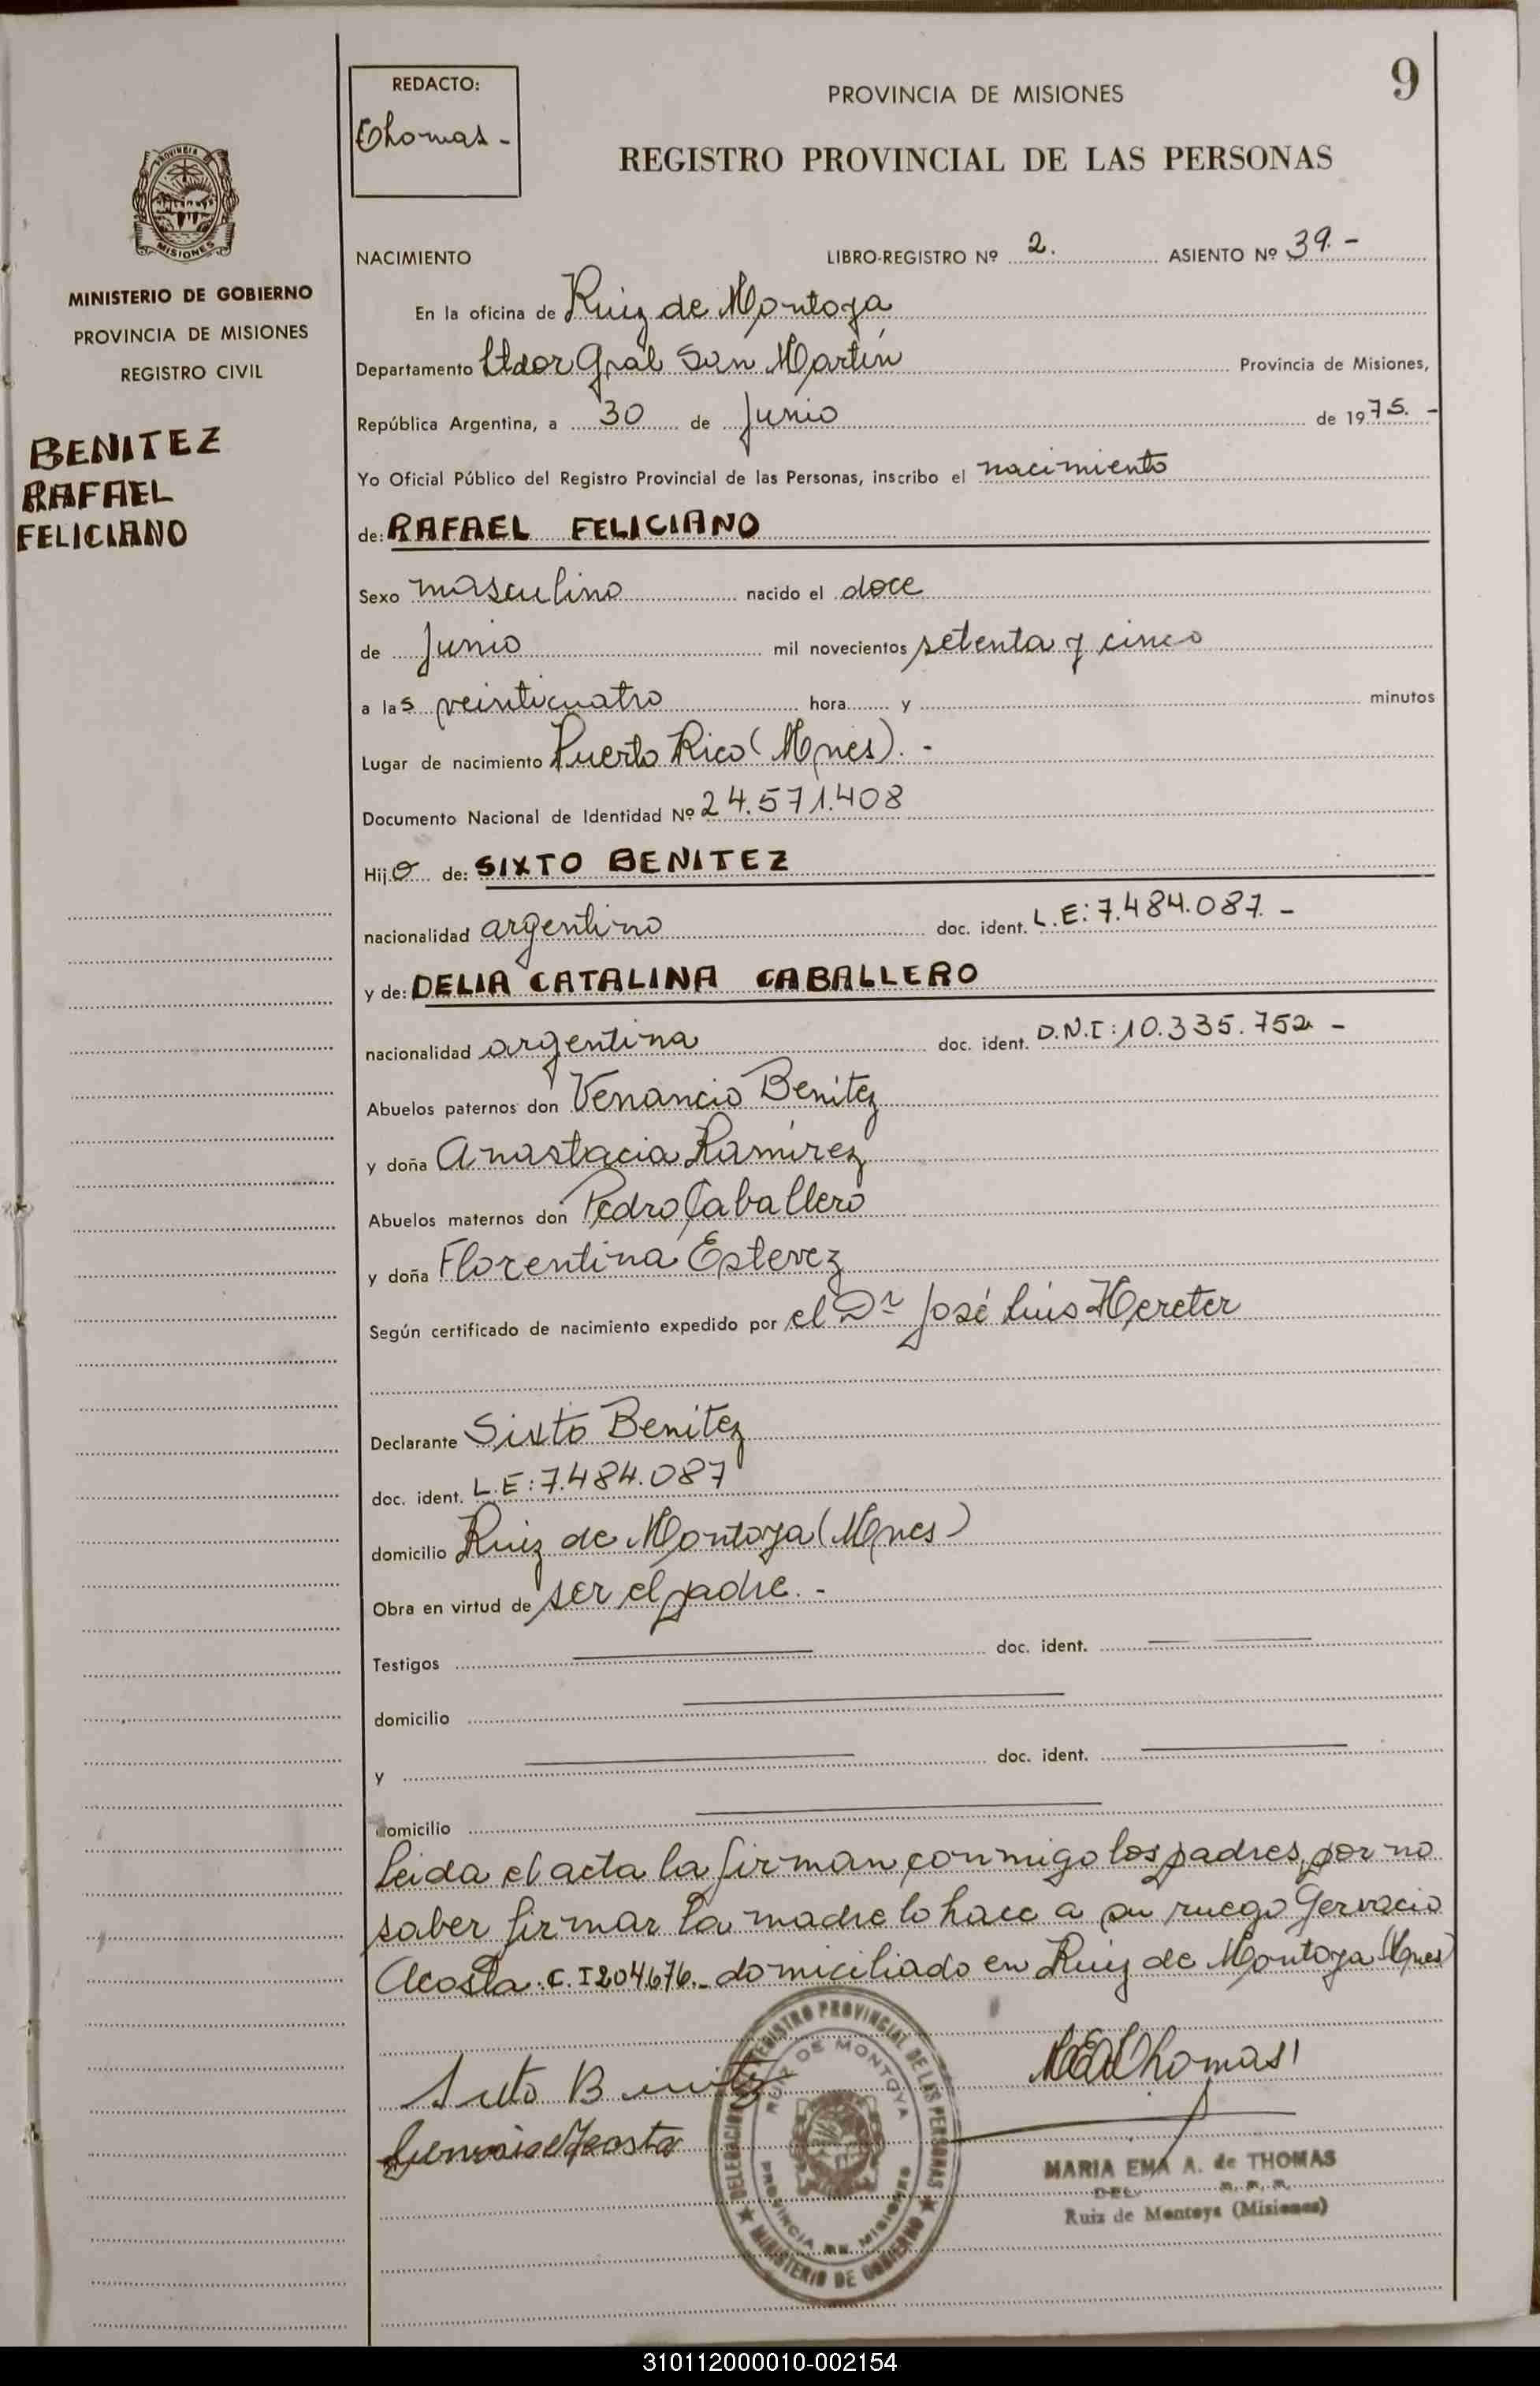 9
REDACTO:
Thomas -
PROVINCIA DE MISIONES
REGISTRO PROVINCIAL DE LAS PERSONAS
PROVINCIA
MISIONES
MINISTERIO DE GOBIERNO
PROVINCIA DE MISIONES
REGISTRO CIVIL
BENITEZ
RAFAEL
FELICIANO
NACIMIENTO LIBRO-REGISTRO Nº 2. ASIENTO Nº 39.-
En la oficina de Ruiz de Montoya
Departamento Ltdor Gral San Martín Provincia de Misiones,
República Argentina, a 30 de Junio de 1975. -
Yo Oficial Público del Registro Provincial de las Personas, inscribo el nacimiento
de: RAFAEL FELICIANO
Sexo masculino nacido el doce
de Junio mil novecientos setenta y cinco
a las veinticuatro hora y minutos
Lugar de nacimiento Puerto Rico (Mnes). -
Documento Nacional de Identidad Nº 24.571.408
Hijo de: SIXTO BENITEZ
nacionalidad argentino doc. ident. L.E: 7.484.087. -
y de: DELIA CATALINA CABALLERO
nacionalidad argentina doc. ident. D.N.I: 10.335.752 -
Abuelos paternos don Venancio Benítez
y doña Anastacia Ramírez
Abuelos maternos don Pedro Caballero
y doña Florentina Estevez
Según certificado de nacimiento expedido por el Dr José Luis Hereter
Declarante Sixto Benítez
doc. ident. L.E: 7.484.087
domicilio Ruiz de Montoya (Mnes)
Obra en virtud de ser el padre. -
Testigos doc. ident.
domicilio
y doc. ident.
domicilio
Leida el acta la firman conmigo los padres, por no
saber firmar la madre lo hace a su ruego Gervacio
Acosta. C.I 204676.- domiciliado en Ruiz de Montoya (Mnes)
Sixto Benitez
Gervacio Acosta
DELEGACION REGISTRO PROVINCIAL DE LAS PERSONAS
RUIZ DE MONTOYA
PROVINCIA DE MISIONES
MINISTERIO DE GOBIERNO
MARIA EMA A. de THOMAS
DEL. R. P. P.
Ruiz de Montoya (Misiones)
310112000010-002154